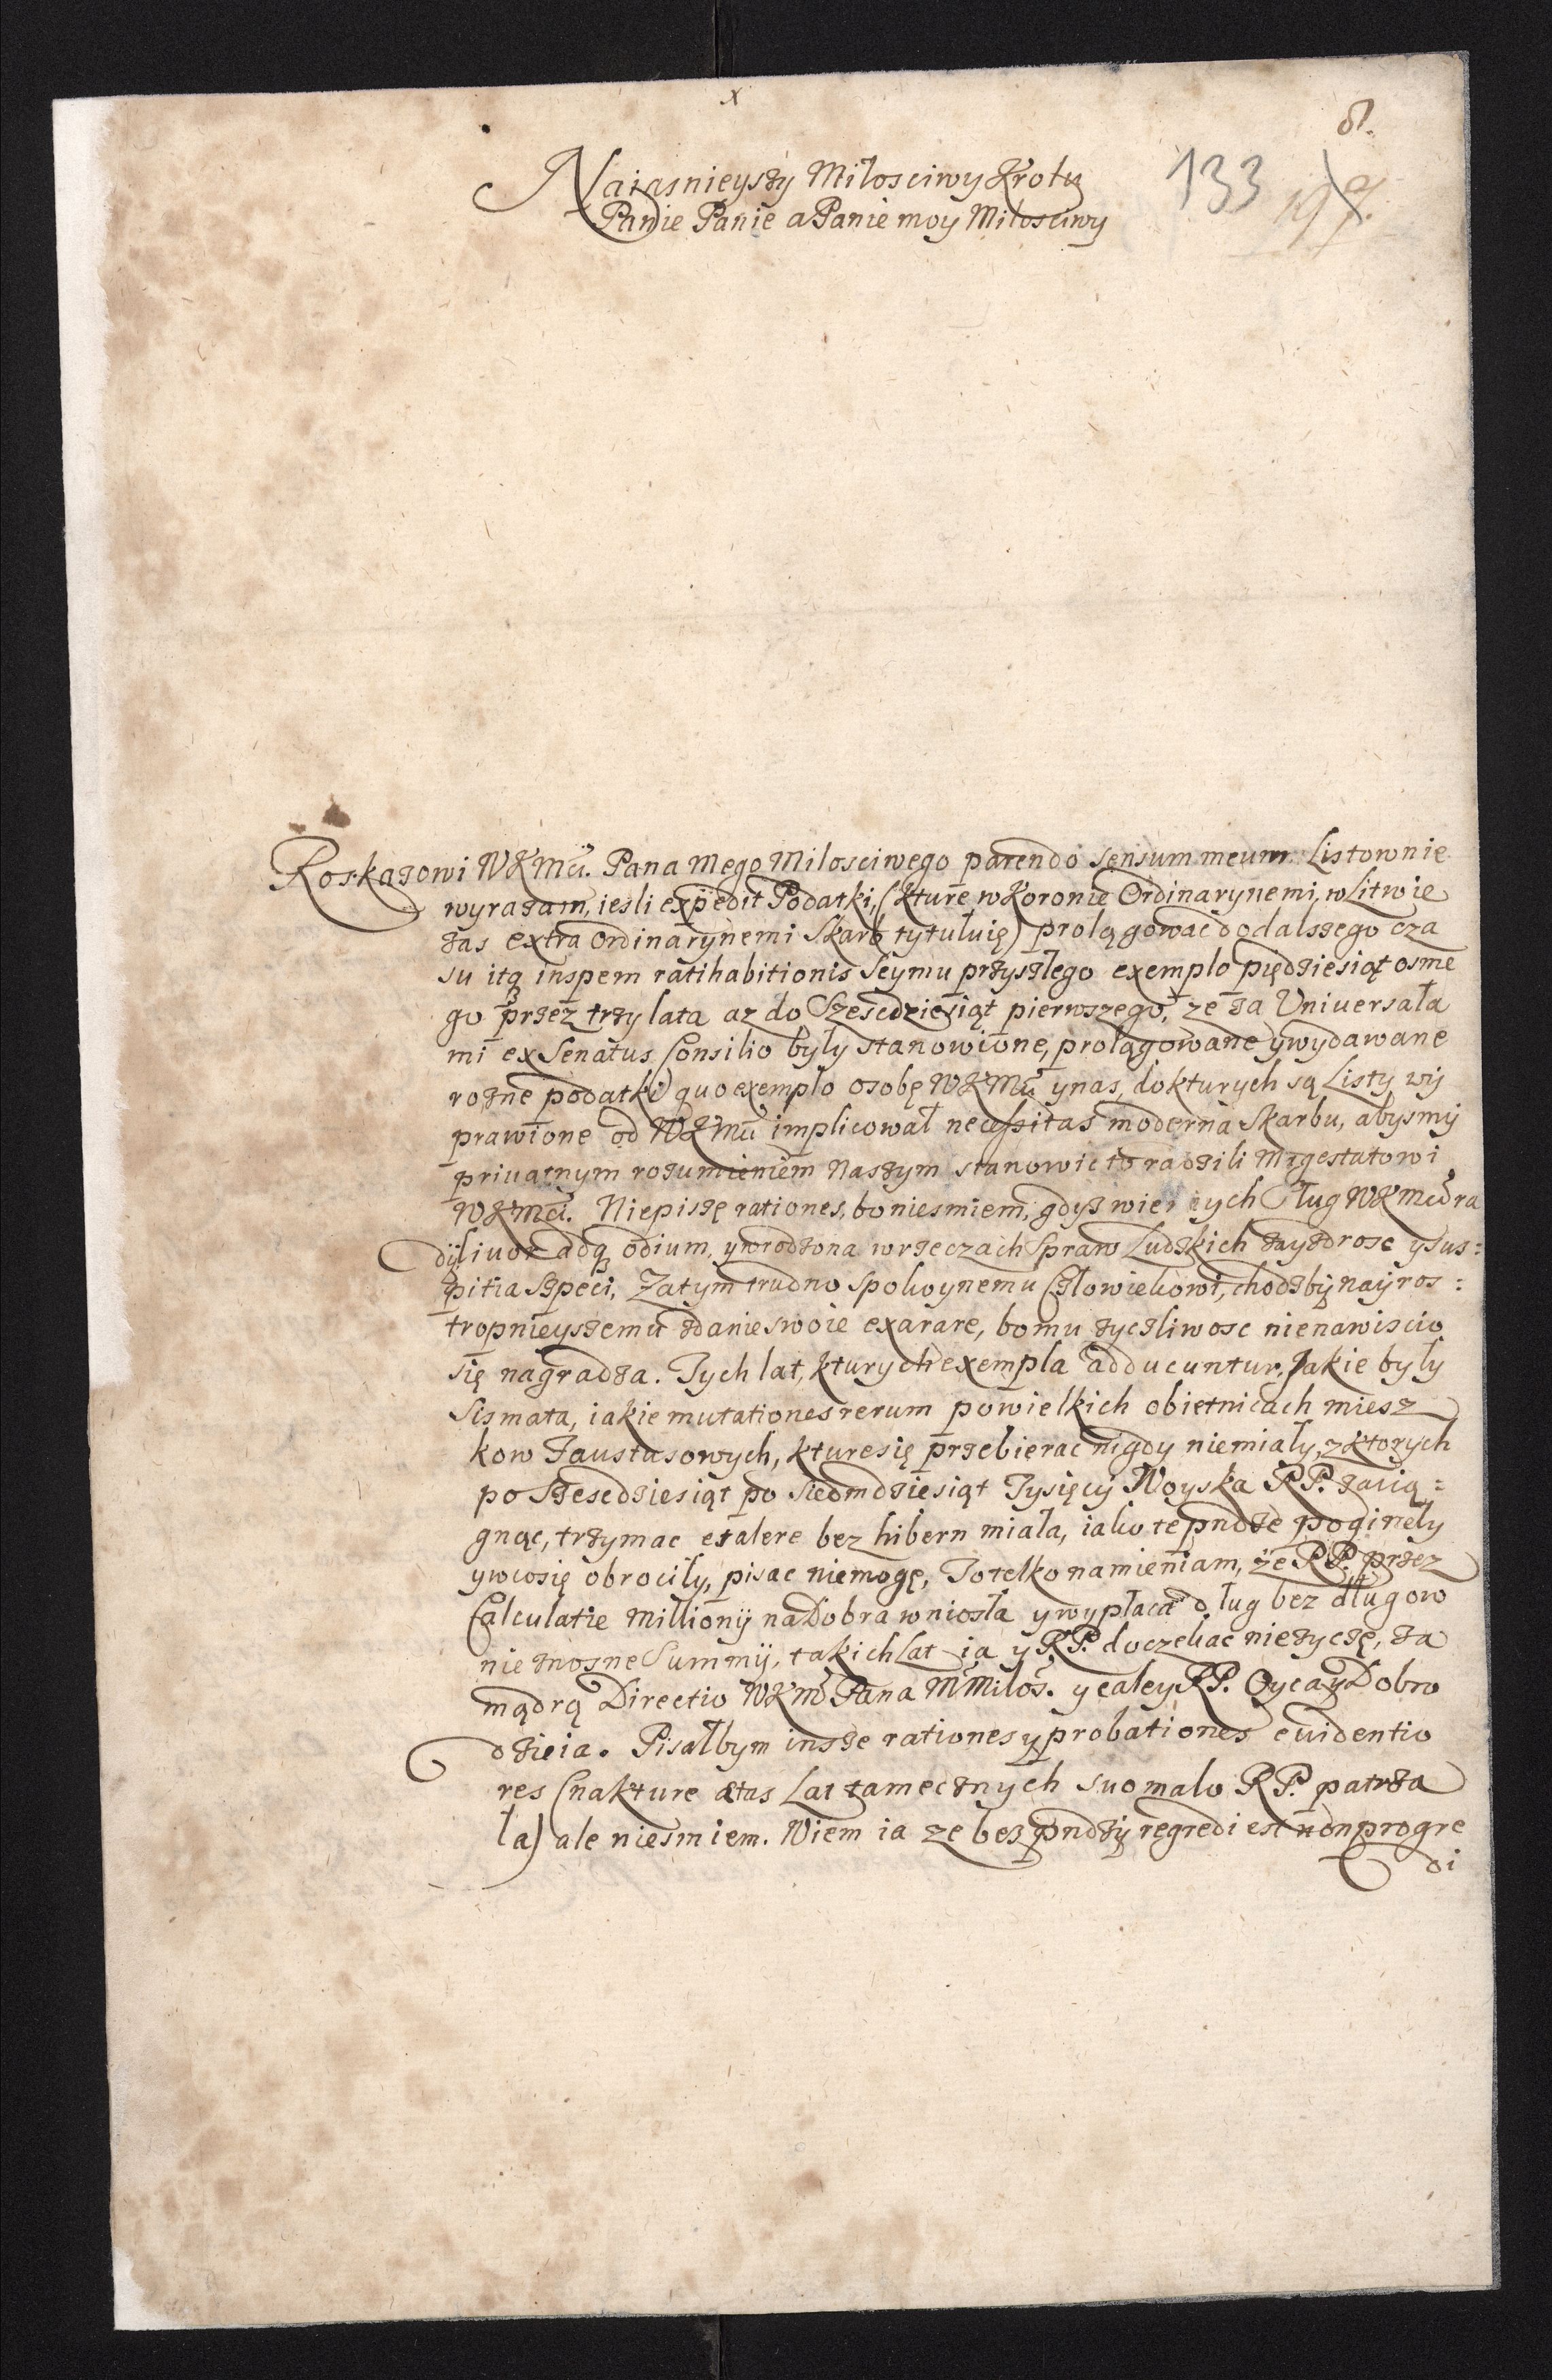 x
61.
133 197.
Naiasnieyszy Milosciwy Krolu
Panie Panie a Panie moy Milosciwy
Roskazowi WKMci. Pana Mego Milosciwego parendo sensum meum Listownie
wyrazam, iesli expedit Podatki, (kture w Koronie Ordinarynemi, w Litwie
zas extra Ordinarynemi Skarb tytuluię) prolągowac do dalszego cza
su itq inspem ratihabitionis Seymu przyszlego exemplo piędziesiąt osme
go przez trzy lata az do Szescdziesiąt pierwszego, ze za Universała
mi ex Senatus Consilio były stanowione, prolągowane y wydawane
rozne podatki) quo exemplo osobę WKMci y nas, do kturych są Listy wy
prawione od WKMci implicował necessitas moderna Skarbu, abysmy
priuatnym rozumieniem naszym stanowic to radzili Maiestatowi
WKMci. Niepiszę rationes, bo niesmiem, gdyz wiernych Sług WKMci ra
dy livor adq odium, y wrodzona w rzeczach Spraw Ludzkich zayzdrosc y sus:
pitia szpeci, Zatym trudno spokoynemu Człowiekowi, chodzby nayros:
tropnieyszemu zdanie swoie exarare, bo mu zyczliwosc nienawiscio
się nagradza. Tych lat, kturych exempla adducuntur, Jakie były
Scismata, iakie mutationes rerum po wielkich obietnicach miesz
kow Faustusowych, kture się przebierac nigdy niemiały, z ktorych
po Szescdziesiąt po siedmdziesiąt Tysięcy Woyska RP. zacią:
gnąc, trzymac et alere bez hibern miala, iako te pndze poginęły
y w co się obrociły, pisac niemogę, To telko namieniam, ze RP. przez
Calculatie Milliony na Dobra wniosła y wypłaca dług bez długow
nieznosne Summy, takich Lat ia y RP. doczekac nie zyczę, za
mądrą Directio WKM Pana M Milos. y całey RP. Oyca y Dobro
dzieia. Pisałbym insze rationes y probationes evidentio
res (na kture ætas Lat tamecznych suo malo RP. patrza
la) ale niesmiem. Wiem ia ze bez pndzy regredi est non progre
di